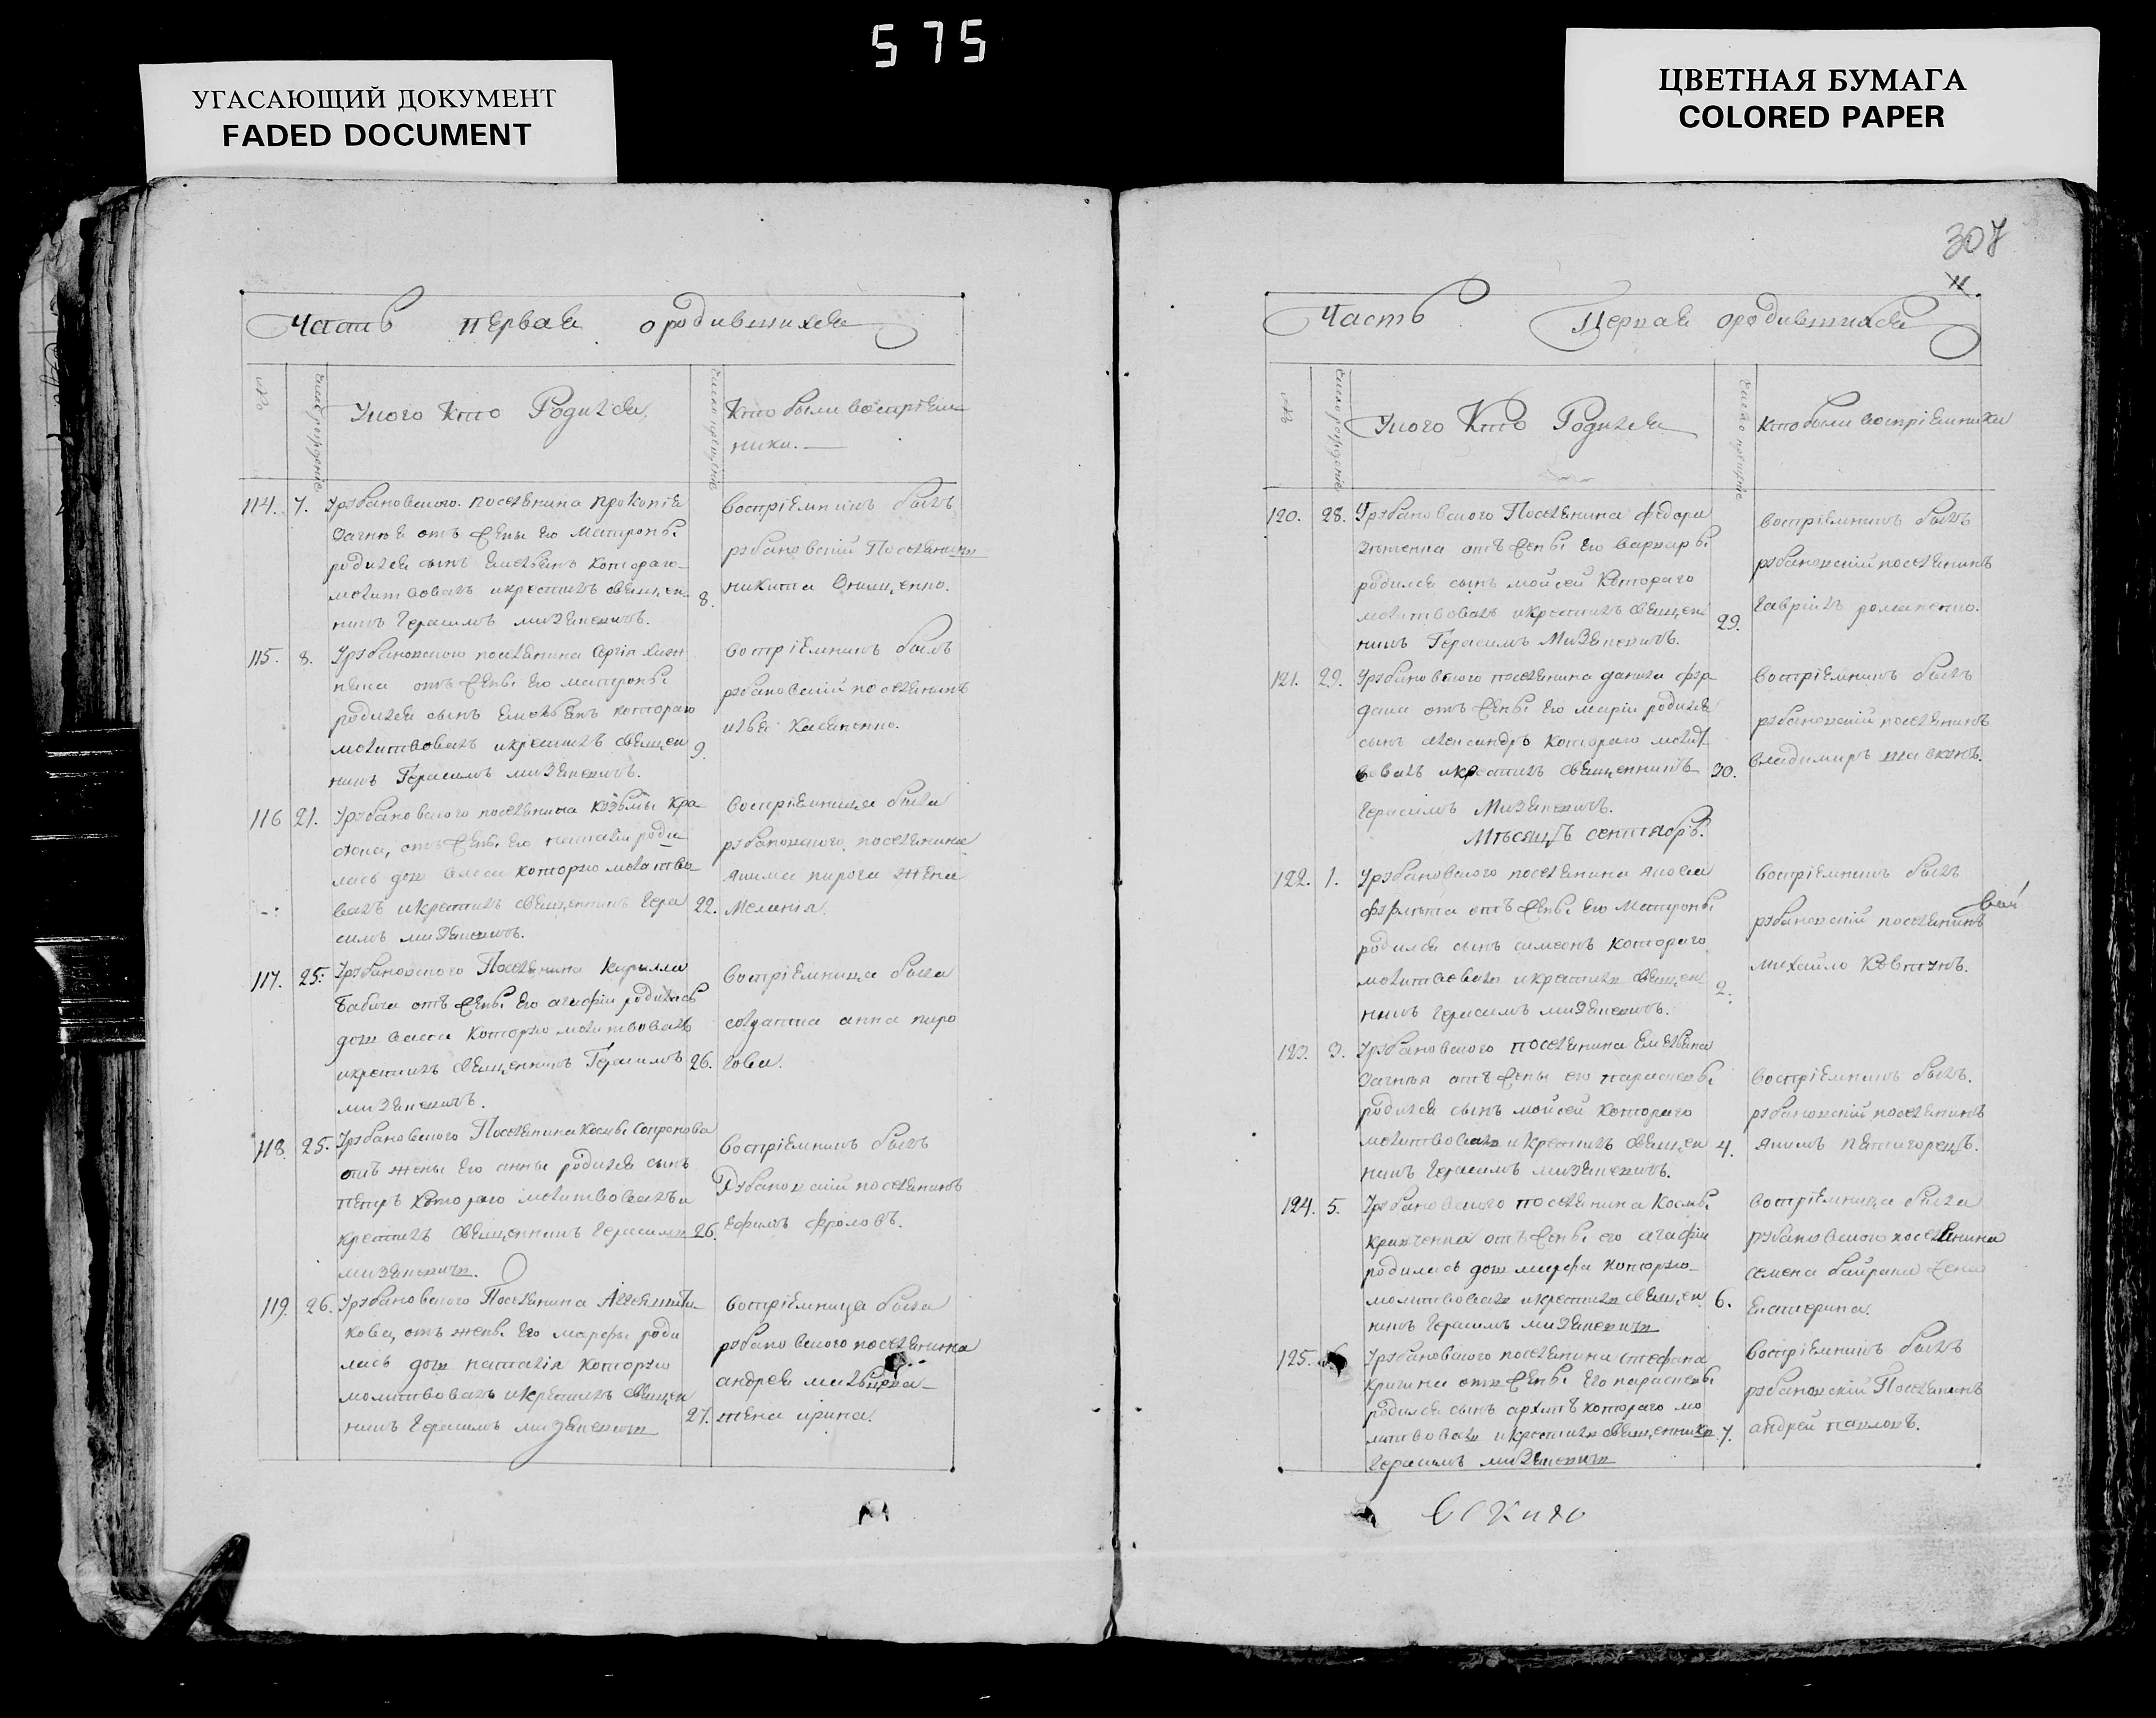 575
УГАСАЮЩИЙ ДОКУМЕНТ
FADED DOCUMENT
ЦВЕТНАЯ БУМАГА
COLORED PAPER
Часть первая о родившихся
№
Число рождения
У кого кто Родился
Число крещения
Кто были воспріем
ники.
114. 7. У рубановского поселянина Прокопія
отъ жены его Матроны
родился сынъ Емельянъ котораго
молитвовалъ и крестилъ священ
никъ Герасимъ Мизеневичъ.
8.
воспріемникъ былъ
рубановскій Поселянинъ
никита Онищенко.
115. 8. У рубановского поселянина Сергія
отъ жены его матроны
родился сынъ Емельянъ котораго
молитвовалъ и крестилъ священ
никъ Герасимъ мизеневичъ.
9.
воспріемникъ былъ
рубановскій поселянинъ
илья Касяненко.
116 21. У рубановского поселянина козьмы Кра
отъ жены его наталіи роди
лась дочь васса которую молитво
валъ и крестилъ священникъ Гера
симъ мизеневичъ.
22.
воспріемница была
рубановского поселянина
якима пирога жена
Меланія.
117. 25. У рубановского Поселянина Кирилла
Бабича отъ жены его агафіи родилась
дочь васса которую молитвовалъ
и крестилъ священникъ Герасимъ
мизеневичъ.
26.
воспріемница была
солдатка анна пиро
гова.
118. 25. У рубановского Поселянина Космы Сопронова
отъ жены его анны родился сынъ
петръ котораго молитвовалъ и
крестилъ священникъ Герасимъ
мизеневичъ.
26.
воспріемникъ былъ
Рубановскій поселянинъ
Ефимъ Фроловъ.
119. 26. У рубановского Поселянина
кова, отъ жены его марфы роди
лась дочь наталія которую
молитвовалъ и крестилъ священ
никъ Герасимъ мизеневичъ
27.
воспріемница была
рубановского поселянина
андрея
жена ирина.
307
11
Часть Первая о родившихся
№
Число рождения
У кого Кто Родился
Число крещения
Кто были воспріемники
120. 28. У рубановского Поселянина федора
отъ жены его варвары
родился сынъ мойсей котораго
молитвовалъ и крестилъ священ
никъ Герасимъ Мизеневичъ.
29.
воспріемникъ былъ
рубановскій поселянинъ
гавріилъ романенко.
121. 29. У рубановского поселянина данила
отъ жены его маріи родился
сынъ александръ котораго молит
вовалъ и крестилъ священникъ
Герасимъ Мизеневичъ.
30.
воспріемникъ былъ
рубановскій поселянинъ
владимиръ
Мѣсяцъ сентябрь.
122. 1. У рубановского поселянина якова
отъ жены его Матроны
родился сынъ симеонъ котораго
молитвовалъ и крестилъ священ
никъ Герасимъ мизеневичъ.
2.
воспріемникъ былъ
рубановскій поселянинъ
михайло Ковтунъ.
123. 3. У рубановского поселянина Емельяна
отъ жены его парасковьи
родился сынъ мойсей котораго
молитвовалъ и крестилъ священ
никъ Герасимъ мизеневичъ.
4.
воспріемникъ былъ.
рубановскій поселянинъ
якимъ пятигорецъ.
124. 5. У рубановского поселянина Космы
кравченка отъ жены его агафіи
родилась дочь марфа которую
молитвовалъ и крестилъ священ
никъ Герасимъ мизеневичъ
6.
воспріемница была
рубановского поселянина
семена байрака жена
Екатерина.
125. У рубановского поселянина стефана
отъ жены его парасковьи
родился сынъ архипъ котораго мо
литвовалъ и крестилъ священникъ
Герасимъ мизеневичъ
7.
воспріемникъ былъ
рубановскій Поселянинъ
андрей павловъ.